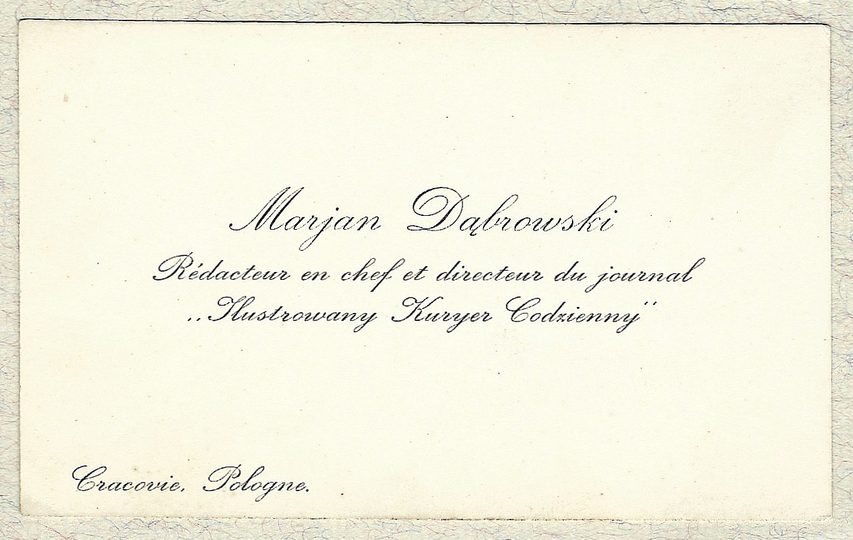 Marjan Dąbrowski
Rédacteur en chef et directeur du journal
„Ilustrowany Kuryer Codzienny"
Cracovie. Pologne.